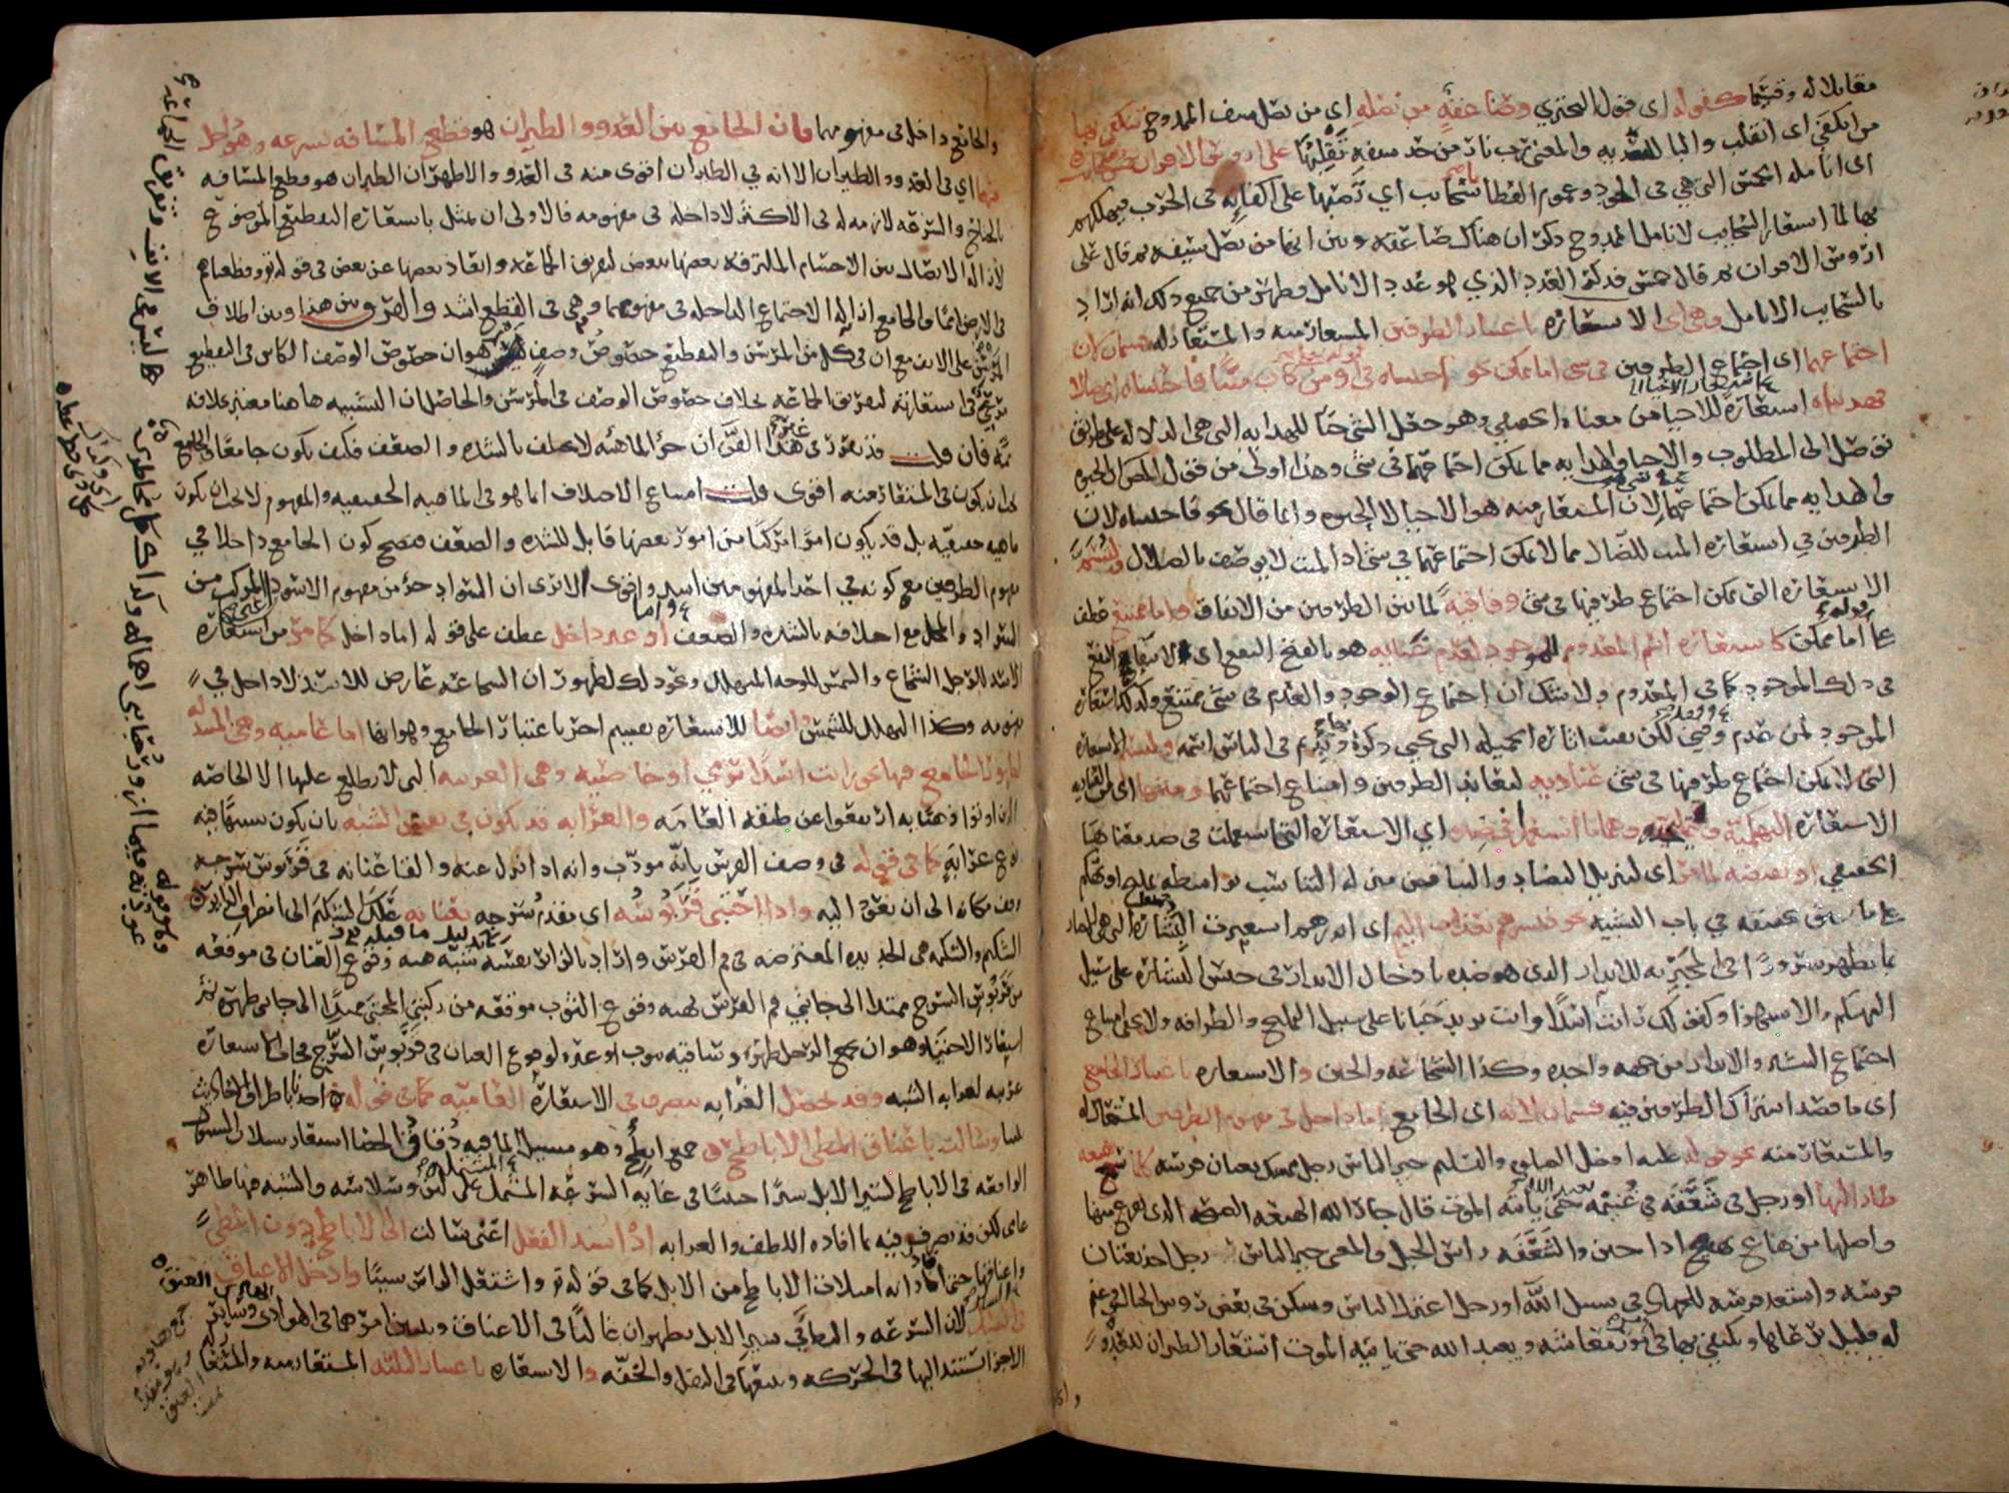 مقابلا له وقسيما كقوله اى قول البحتري وصاعقة من نصله اى من نصل سيف الممدوح تنكفي بها
من انكفى اى انقلب والبا للتعديه والمعنى رب نار من حد سيفه تقلبها على ارؤس الاقران خمس سحايب
اى انامله الخمس التي هي في الجود وعموم العطا سحايب اي تصبها على اكفايه في الحرب فيهلكهم
بها لما استعار السحايب لانامل الممدوح ذكر ان هناك صاعقه وبين انها من نصل سيفه ثم قال على
ارؤس الاقران ثم قال خمس فذكر العدد الذي هو عدد الانامل فظهر من جميع ذلك انه اراد
بالسحايب الانامل وهي اى الاستعاره باعتبار الطرفين المستعار منه والمستعار له قسمان لان
اجتماعهما اى اجتماع الطرفين في شي اما ممكن نحو احييناه في اومن كان ميتا فاحييناه اى ضالا
فهديناه استعارة للاحيا من معناه الحقيقي وهو جعل الشي حيا للهدايه التي هي الدلاله على طريق
توصل الى المطلوب والاحيا والهدايه مما يمكن اجتماعهما في شي وهذا اولى من قول المص ان الحيوة
والهدايه مما يمكن اجتماعهما لان المستعار منه هو الاحيا لا الحيوه وانما قال نحو فاحييناه لان
الطرفين في استعاره الميت للضال مما لا يمكن اجتماعهما في شي اذ الميت لا يوصف بالضلال ولتسم
الاستعاره التي يمكن اجتماع طرفيها في شي وفاقية لما بين الطرفين من الاتفاق واما ممتنع عطف
على اما ممكن كاستعاره اسم المعدوم للموجود لعدم غنايه هو بالفتح النفع اى لانتفاع النفع
في ذلك الموجود كما في المعدوم ولا شك ان اجتماع الوجود والعدم في شي ممتنع وكذلك استعارة
الموجود لمن عدم وفقد لكن بقيت اثاره الجميله التي تحيي ذكره وتديم في الناس اسمه ولتسم الاستعاره
التي لا يمكن اجتماع طرفيها في شي عنادية لتعاند الطرفين وامتناع اجتماعهما ومنها اى من العناديه
الاستعاره التهكمية والتمليحية وهما ما استعمل في ضده اى الاستعاره التي استعملت في ضد معناها
الحقيقي او نقيضه لما مر اى لتنزيل التضاد والتناقض منزلة التناسب بواسطه تمليح او تهكم
على ما سبق تحقيقه في باب التشبيه نحو فبشرهم بعذاب اليم اى انذرهم استعيرت البشارة التي هي الاخبار
بما يظهر سرورا في المخبر به للانذار الذي هو ضده بادخال الانذار في جنس البشاره على سبيل
التهكم والاستهزا وكقولك رايت اسدا وانت تريد جبانا على سبيل التمليح والظرافه ولا يخفى امتناع
اجتماع التبشير والانذار من جهه واحده وكذا الشجاعه والجبن والاستعاره باعتبار الجامع
اى ما قصد اشتراك الطرفين فيه قسمان لانه اى الجامع اما داخل في مفهوم الطرفين المستعار له
والمستعار منه نحو قوله عليه افضل الصلوه والتسليم خير الناس رجل ممسك بعنان فرسه كلما سمع هيعه
طار اليها او رجل في شعفه في غنيمه حتى ياتيه الموت قال جار الله الهيعه الصيحه الذي يفزع منها
واصلها من هاع يهيع اذا جبن والشعفه راس الجبل والمعنى خير الناس رجل اخذ بعنان
فرسه واستعد للجهاد في سبيل الله او رجل اعتزل الناس وسكن في بعض رؤس الجبال في غنم
له قليل يرعاها ويكتفي بها في امور معاشه ويعبد الله حتى ياتيه الموت استعار الطيران للعدو
والجامع داخل في مفهومهما فان الجامع بين العدو والطيران هو قطع المسافه بسرعه وهو داخل
فيهما اي في العدو والطيران الا انه في الطيران اقوى منه في العدو والاظهر ان الطيران هو قطع المسافه
بالجناح والسرعه لازمه له في الاكثر لا داخله في مفهومه فالاولى ان يمثل باستعاره التقطيع الموضوع
لازاله الاتصال بين الاجسام الملتزقه بعضها ببعض لتفريق الجماعه وابعاد بعضها عن بعض في قوله تع وقطعناهم
في الارض امما والجامع ازاله الاجتماع الداخله في مفهومهما وهي في القطع اشد والفرق بين هذا وبين اطلاق
المرسن على الانف مع ان في كل من المرسن والتقطيع خصوص وصف هو ان خصوص الوصف الكاين في التقطيع
مرعي في استعارته لتفريق الجماعه بخلاف خصوص الوصف في المرسن والحاصل ان التشبيه هاهنا معتبر بخلافه
ثمه فان قلت قد تقرر في غير هذا الفن ان جزؤ الماهيه لا يختلف بالشده والضعف فكيف يكون جامعا والجامع
يجب ان يكون في المستعار منه اقوى قلت امتناع الاختلاف انما هو في الماهيه الحقيقيه والمفهوم لا يجب ان يكون
ماهيه حقيقيه بل قد يكون امرا مركبا من امور بعضها قابل للشده والضعف فيصح كون الجامع داخلا في
مفهوم الطرفين مع كونه في احد المفهومين اشد واقوى الا ترى ان السواد جزؤ من مفهوم الاسود اعني المركب من
السواد والمحل مع اختلافه بالشده والضعف او غير داخل عطف على قوله اما داخل كما مر من استعارة
الاسد للرجل الشجاع والشمس للوجه المتهلل ونحو ذلك لظهور ان الشجاعه عارض للاسد لا داخل في
مفهومه وكذا التهلل للشمس وايضا للاستعاره تقسيم اخر باعتبار الجامع وهو انها اما عاميه وهي المبتذله
لظهور الجامع فيها نحو رايت اسدا يرمي او خاصيه وهي الغريبه التي لا يطلع عليها الا الخاصه
الذين اوتوا ذهنا به ارتفعوا عن طبقه العامه والغرابه قد تكون في نفس الشبه بان يكون تشبيها فيه
نوع غرابه كما في قوله في وصف الفرس بانه مودب وانه اذا نزل عنه والقا عنانه في قربوس سرجه
وقف مكانه الى ان يعود اليه واذا احتبى قربوسه اى مقدم سرجه بعنانه علك الشكيم الى انصراف الزاير
الشكيم والشكيمه هي الحديده المعترضه في فم الفرس واراد بالزاير نفسه شبه هيئه وقوع العنان في موقعه
من قربوس السرج ممتدا الى جانبي فم الفرس بهيئه وقوع الثوب موقعه من ركبتي المحتبي ممتدا الى جانبي ظهره ثم
استعار الاحتبا وهو ان يجمع الرجل ظهره وساقيه بثوب او غيره لوقوع العنان في قربوس السرج فجات الاستعارة
غريبه لغرابه الشبه وقد تحصل الغرابه بتصرف في الاستعارة العاميه كما في قوله اخذنا باطراف الاحاديث
بيننا وسالت باعناق المطي الاباطح جمع ابطح وهو مسيل الما فيه دقاق الحصا استعار سيلان السيول
الواقعه في الاباطح لسير الابل سيرا حثيثا في غايه السرعه المشتمل على لين وسلاسه والشبه فيها ظاهر
عامي لكن قد تصرف فيه بما افاده اللطف والغرابه اذ اسند الفعل اعني سالت الى الاباطح دون المطي
واعناقها حتى افاد انه امتلات الاباطح من الابل كما في قوله تع واشتعل الراس شيبا وادخل الاعناق
في السير لان السرعه والبطؤ في سير الابل يظهران غالبا في الاعناق ويتبين امرهما في الهوادي وساير
الاجزا تستند اليها في الحركه وتتبعها في الثقل والخفه والاستعاره باعتبار الثلثه المستعار منه والمستعار